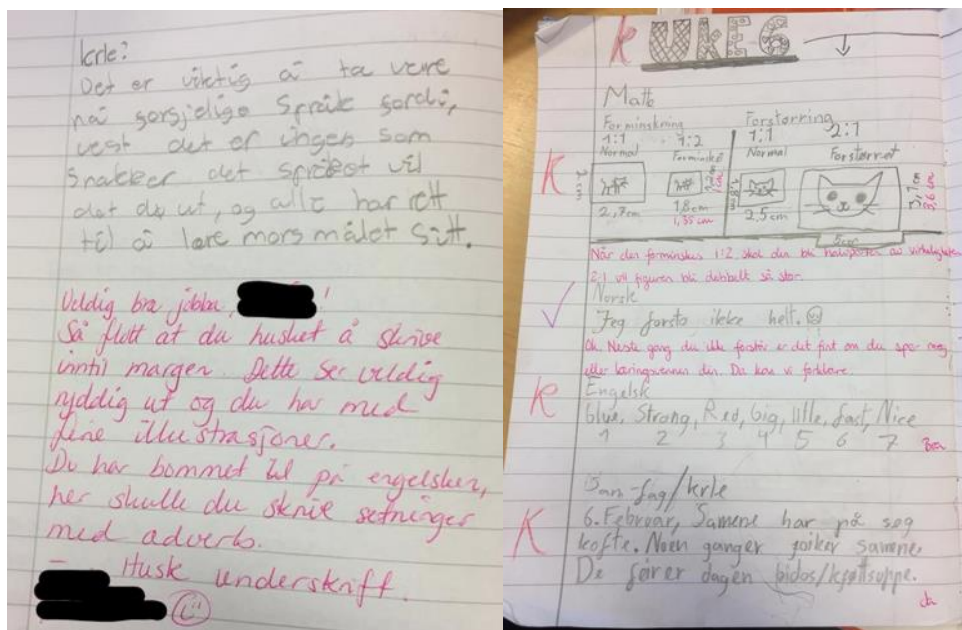 krle:
Det er viktig å ta vere
på forsjelige språk fordi,
vest det er ingen som
snakker det språket vil
det dø ut, og alle har rett
til å lære mors målet sitt.
Veldig bra jobba, !
Så flott at du husket å skrive
inntil margen. Dette ser veldig
ryddig ut og du har med
fine illustrasjoner.
Du har bommet litt på engelsken,
her skulle du skrive setninger
med adverb.
– Husk underskrift.
K UKE 6
Matte
Forminskning Forstørring
1:1 1:2 1:1 2:1
Normal Forminsket Normal Forstørret
K 2 cm
2,7cm 1,8cm 2,5cm
1,35 cm
5cm
Når den forminskes 1:2 skal den bli halvparten av virkeligheten
2:1 vil figuren bli dobbelt så stor.
Norsk
Jeg forsto ikke helt.
Ok. Neste gang du ikke forstår er det fint om du spør meg
eller læringsvennen din. Da kan vi forklare.
K Engelsk
blue, Strong, Red, big, litle, fast, Nice
1 2 3 4 5 6 7 Bra
Sam-fag/krle
K 6. Februar, Samene har på seg
kofte. Noen ganger joiker samene.
De feirer dagen bidos/kjøttsuppe.